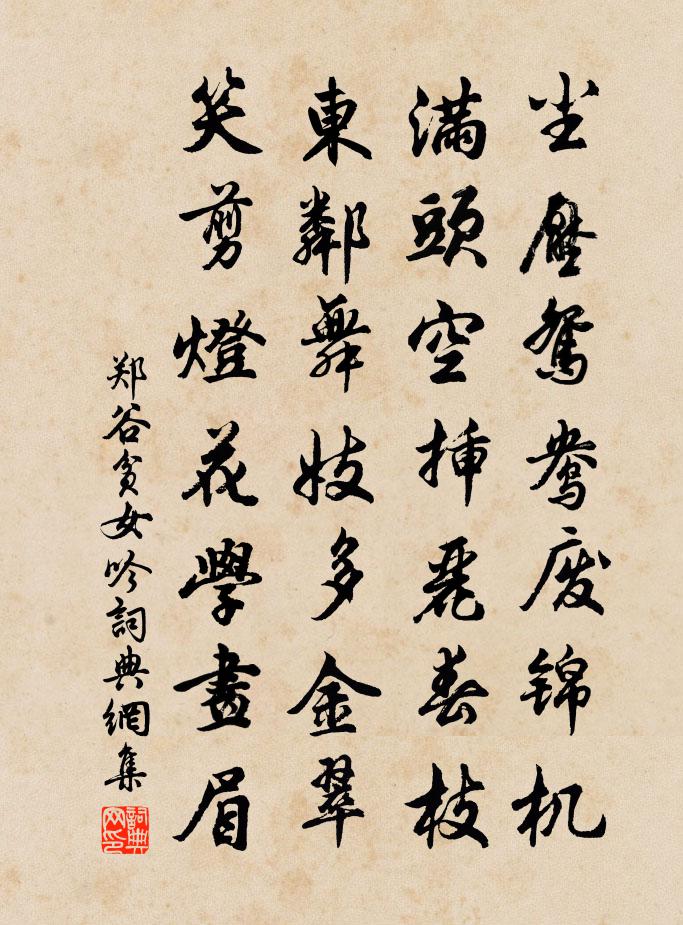 尘壓鴛鴦废锦机
滿頭空插麗春枝
東鄰舞妓多金翠
笑剪燈花學畫眉
郑谷貧女吟詞典網集
詞典
网印